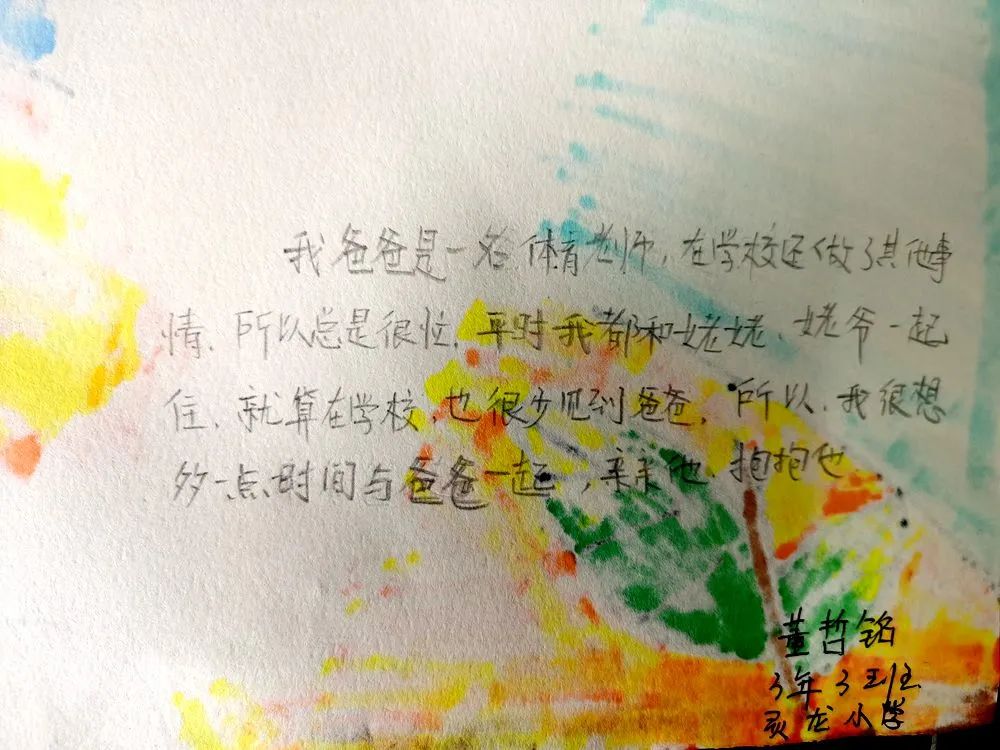 我爸爸是一名体育老师,在学校还做了其他事
情、所以总是很忙,平时我都和姥姥、姥爷一起
住、就算在学校,也很少见到爸爸,所以、我很想
多一点时间与爸爸一起,亲亲他、抱抱他
董哲铭
3年3班
灵龙小学